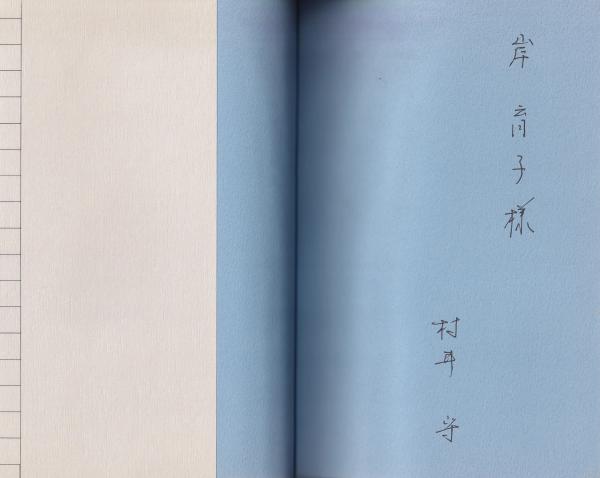 岸 育子様
村井 守